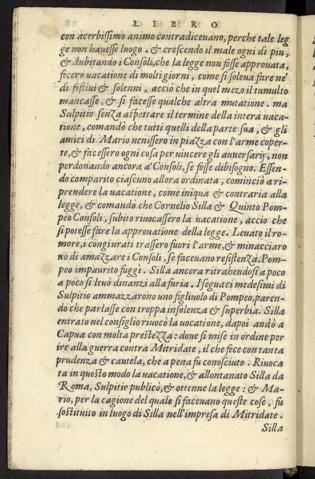 LIBRO
con acerbissimo animo contradicevano, perche tale leg
ge non havesse luogo. & crescendo il male ogni di piu,
& dubitando i Consoli, che la legge non fosse approvata,
fecero vacatione di molti giorni, come si soleva fare ne
di festivi & solenni, accio che in quel mezo il tumulto
mancasse, & si facesse qualche altra mutatione. ma
Sulpitio senza aspettare il termine della intera vaca-
tione, comandò che tutti quelli della parte sua, & gli
amici di Mario venissero in piazza con l'arme coper-
te, & facessero ogni cosa per vincere gli avversarij, non
perdonando ancora a' Consoli, se fosse dibisogno. Essen-
do comparito ciascuno allora ordinata, cominciò a ri-
prendere la vacatione, come iniqua & contraria alla
legge, & comandò che Cornelio Silla & Quinto Pom-
peo Consoli, subito rivocassero la vacatione, accio che
si potesse fire la approvatione della legge. Levato il ro-
more, i congiurati trassero fuori l'arme, & minacciaro
no di amazzare i Consoli, se facevano resistenza. Pom-
peo impaurito fuggi. Silla ancora ritrahendosi a poco
a poco si levò dinanzi alla furia. I seguaci medesimi di
Sulpitio ammazzarono uno figliuolo di Pompeo, paren-
do che parlasse con troppa insolenza & superbia. Silla
entrato nel consiglio rivocò la vocatione, dapoi andò a
Capua con molta prestezza: dove si mise in ordine per
ire alla guerra contra Mitridate, il che fece con tanta
prudenza & cautela, che a pena fu conosciuto. Rivoca
ta in questo modo la vacatione, & allontanato Silla da
Roma, Sulpitio publicò, & ottenne la legge: & Ma-
rio, per la cagione del quale si facevano queste cose, fu
sostituito in luogo di Silla nell'impresa di Mitridate.
Silla